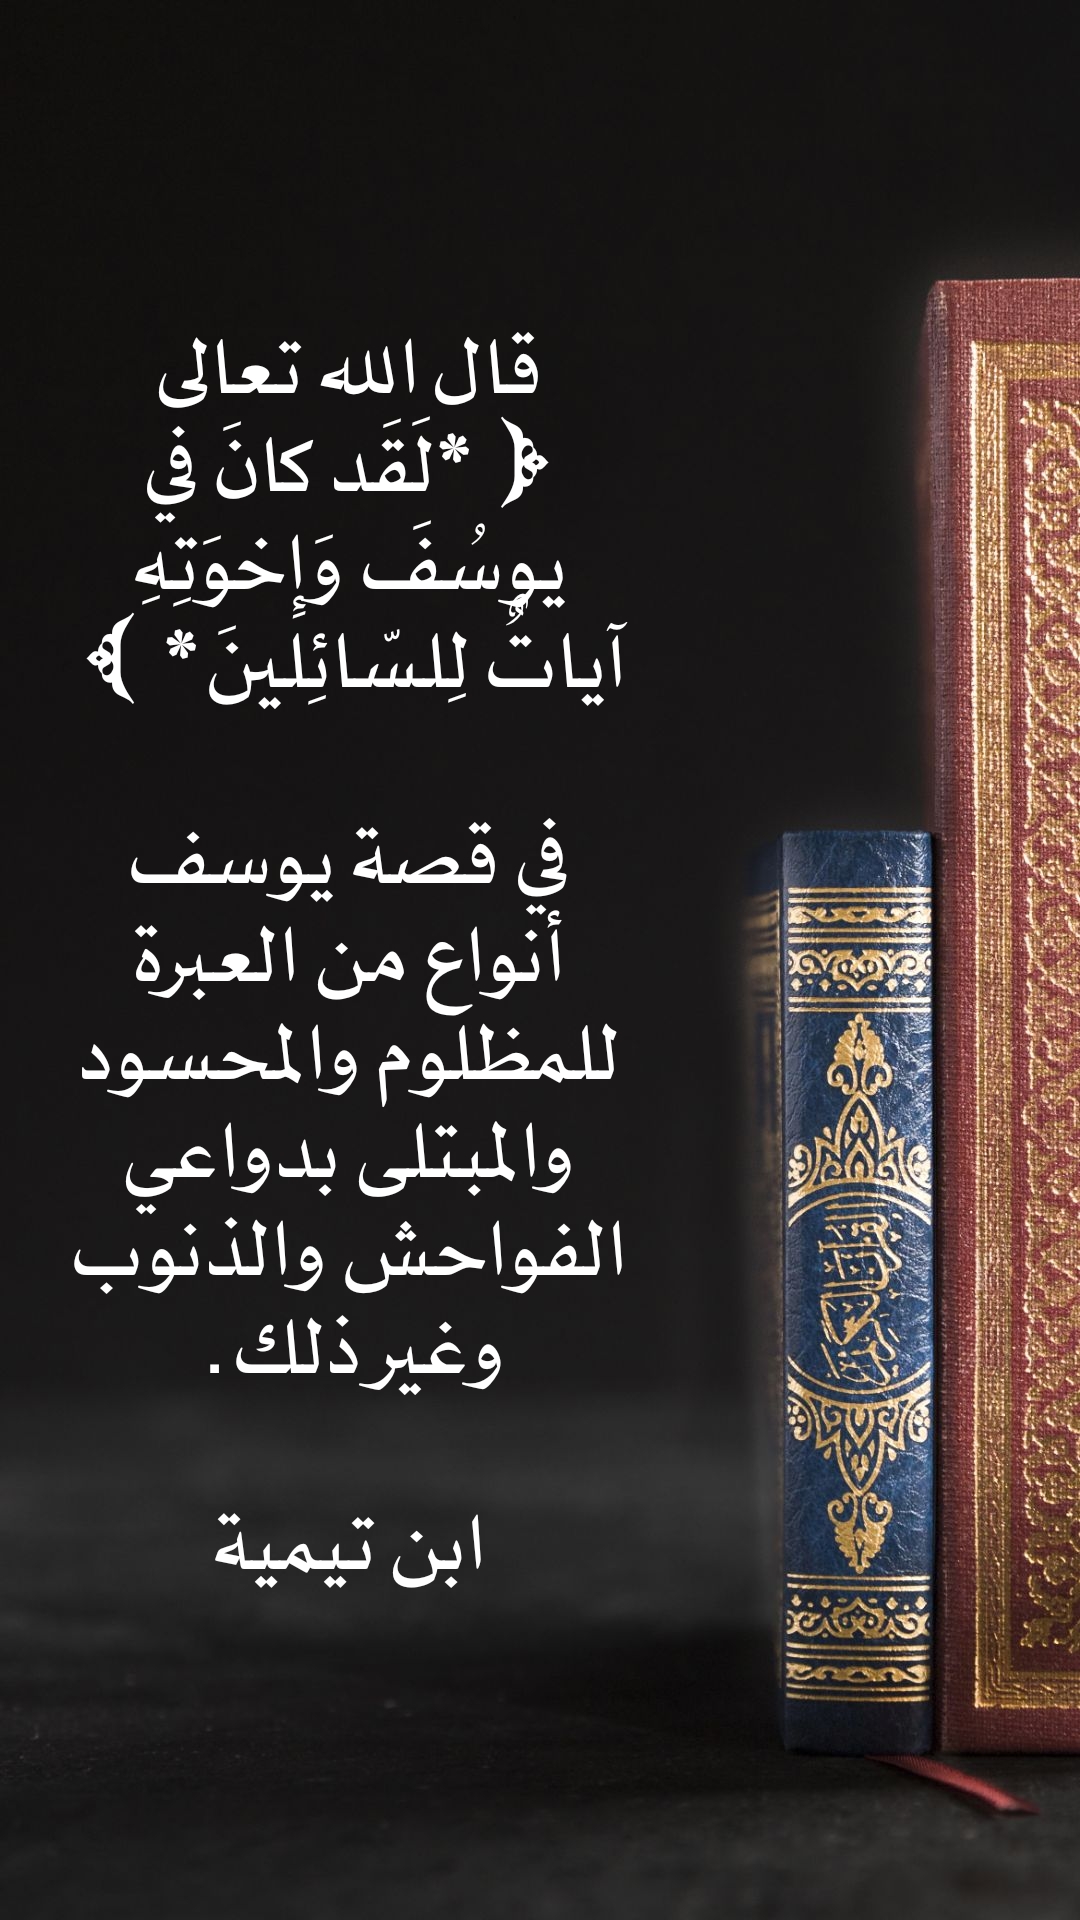 قال الله تعالى
﴿ *لَقَد كانَ في
يوسُفَ وَإِخوَتِهِ
آياتٌ لِلسّائِلينَ* ﴾
في قصة يوسف
أنواع من العبرة
للمظلوم والمحسود
والمبتلى بدواعي
الفواحش والذنوب
وغير ذلك.
ابن تيمية
القرآن الكريم